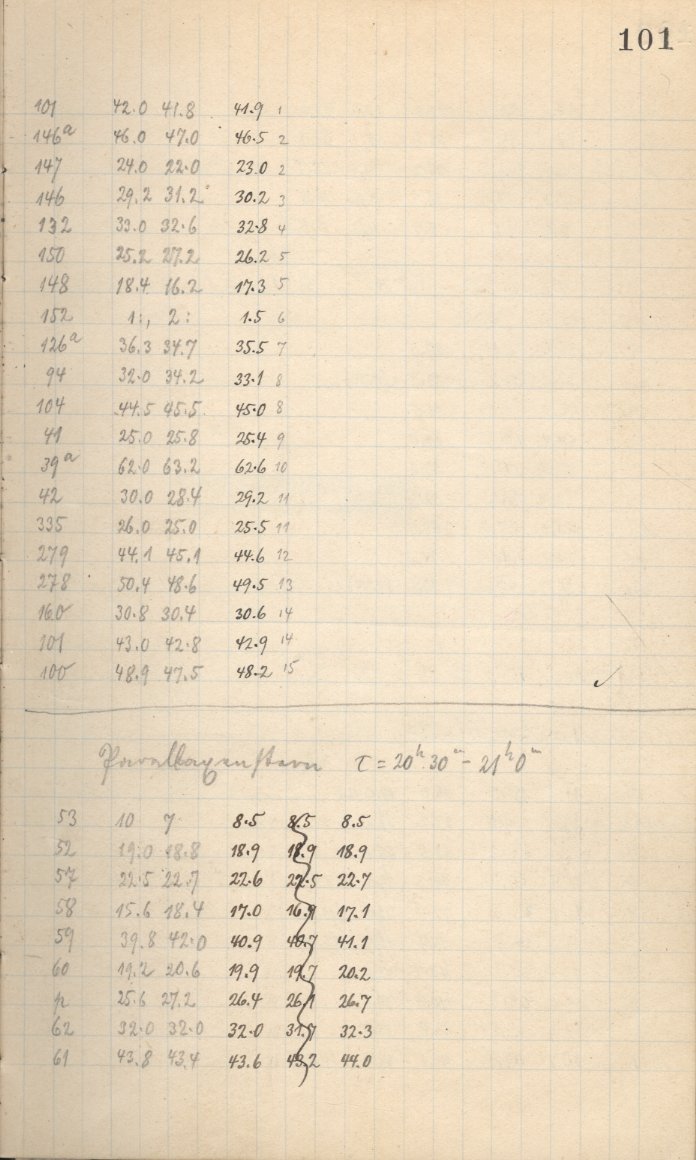 101
101 42.0 41.8 41.9 1
146a 46.0 47.0 46.5 2
147 24.0 22.0 23.0 2
146 29.2 31.2 30.2 3
132 33.0 32.6 32.8 4
150 25.2 27.2 26.2 5
148 18.4 16.2 17.3 5
152 1:, 2: 1.5 6
126a 36.3 34.7 35.5 7
94 32.0 34.2 33.1 8
104 44.5 45.5 45.0 8
41 25.0 25.8 25.4 9
39a 62.0 63.2 62.6 10
42 30.0 28.4 29.2 11
335 26.0 25.0 25.5 11
279 44.1 45.1 44.6 12
278 50.4 48.6 49.5 13
160 30.8 30.4 30.6 14
101 43.0 42.8 42.9 14
100 48.9 47.5 48.2 15
Parallaxenstern τ = 20h 30m - 21h 0m
53 10 7 8.5 8.5 8.5
52 19.0 18.8 18.9 18.9 18.9
57 22.5 22.7 22.6 22.5 22.7
58 15.6 18.4 17.0 16.9 17.1
59 39.8 42.0 40.9 40.7 41.1
60 19.2 20.6 19.9 19.7 20.2
p 25.6 27.2 26.4 26.1 26.7
62 32.0 32.0 32.0 31.7 32.3
61 43.8 43.4 43.6 43.2 44.0